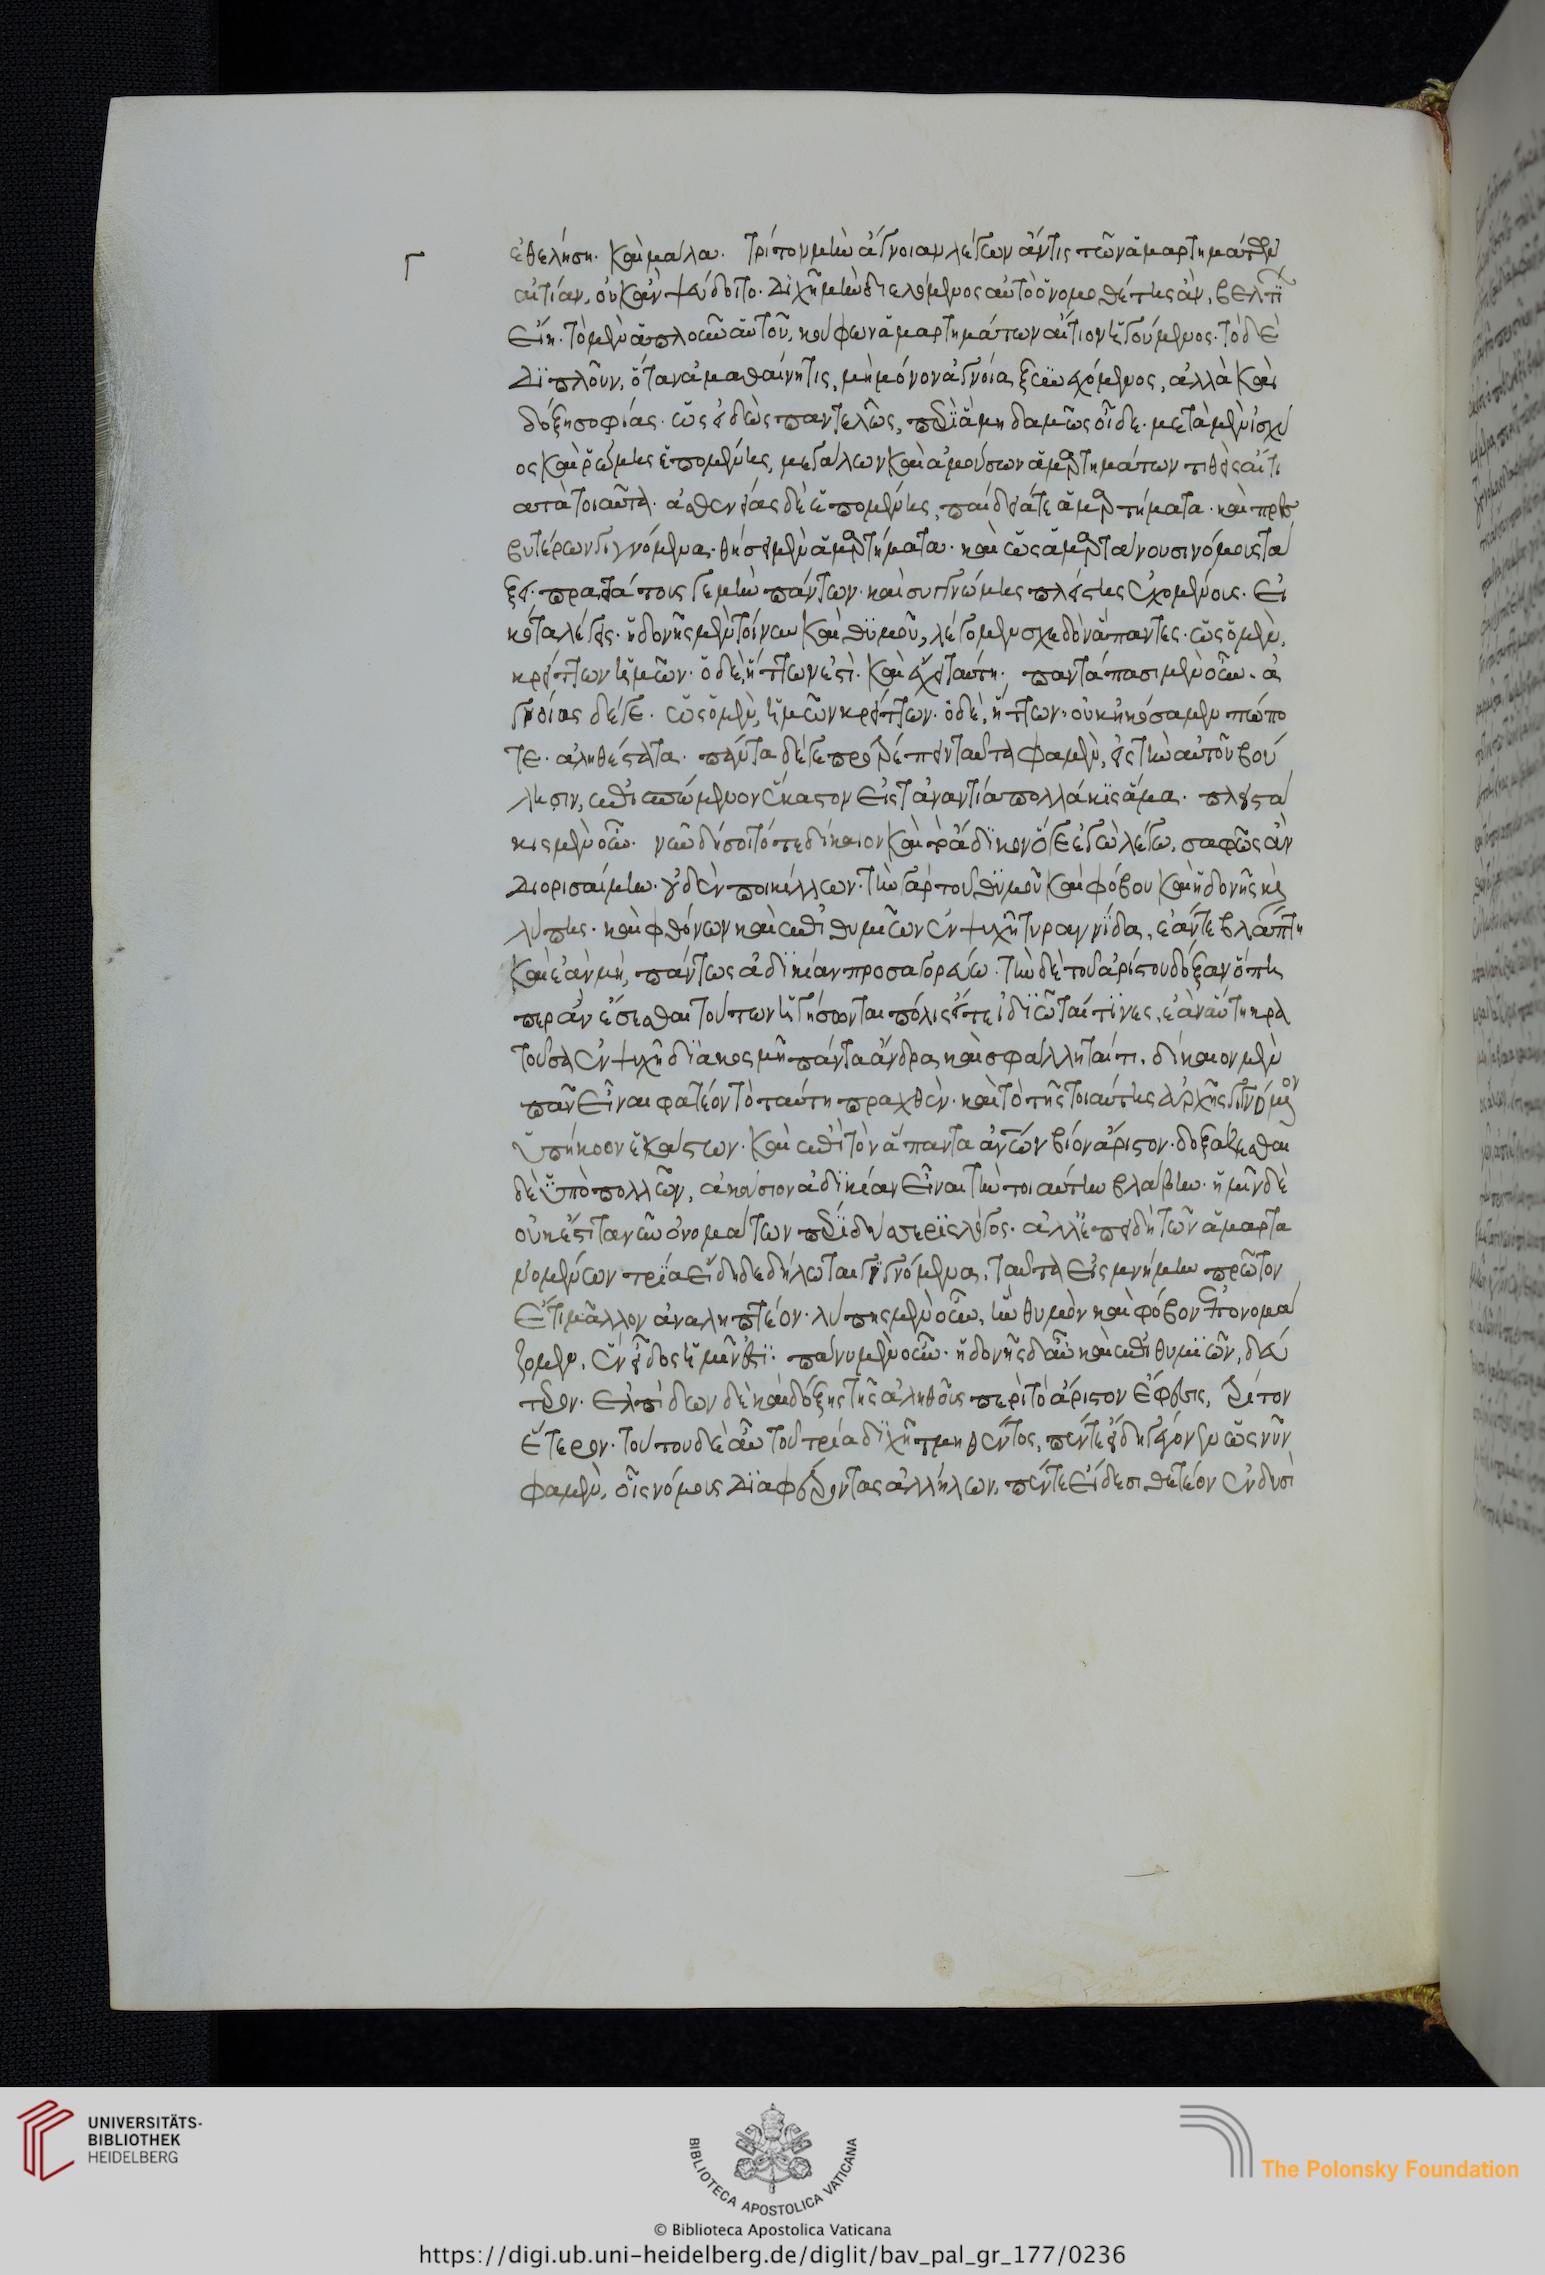 ἐθελήση. καὶ μάλα. τρίτον μὴν ἄγνοιαν λέγων ἄν τις τῶν ἁμαρτημάτων
αἰτίαν, οὐκ ἂν ψεύδοιτο. διχῆ μὴν διελόμενος αὐτὸ ὁ νομοθέτης ἂν, βελτί
εἴη. τὸ μὲν ἁπλοῦν αὐτοῦ, κούφων ἁμαρτημάτων αἴτιον ἡγούμενος. τὸ δὲ
διπλοῦν, ὅταν ἀμαθαίνη τις, μὴ μόνον ἀγνοία ξυνεχόμενος, ἀλλὰ καὶ
δόξη σοφίας. ὡς εἰδὼς παντελῶς, περὶ ἃ μηδαμῶς οἶδε. μετὰ μὲν ἰσχύ
ος καὶ ῥώμης ἑπομένης, μεγάλων καὶ ἀμούσων ἁμαρτημάτων τιθεὶς αἴτι
α τὰ τοιαῦτα. ἀσθενείας δὲ ἑπομένης, παίδειά τε ἁμαρτήματα. καὶ πρεσ
βυτέρων γιγνόμενα. θήσει μὲν ἁμαρτήματα. καὶ ὡς ἁμαρτάνουσι νόμους τά
ξει. πραοτάτους γε μὴν πάντων. καὶ συγγνώμης πλείστης ἐχομένους. εἰ
κότα λέγεις. ἡδονῆς μὲν τοίνυν καὶ θυμοῦ, λέγομεν σχεδὸν ἅπαντες. ὡς ὁ μὲν,
κρείττων ἡμῶν. ὁ δὲ, ἥττων ἐστὶ. καὶ ἔχει ταύτη. παντάπασι μὲν οὖν. ἀ
γνοίας δέ γε. ὡς ὁ μὲν, ἡμῶν κρείττων. ὁ δὲ, ἥττων. οὐκ ἠκούσαμεν πώπο
τε. ἀληθέστατα. πάντα δέ γε προτρέπειν ταῦτα φαμὲν, εἰς τὴν αὑτοῦ βού
λησιν, ἐπισπώμενον ἕκαστον εἰς τἀναντία πολλάκις ἅμα. πλειστά
κις μὲν οὖν. νῦν δή σοι τό τε δίκαιον καὶ τὸ ἄδικον ὅ γε ἐγὼ λέγω, σαφῶς ἂν
διορισαίμην. οὐδὲν ποικίλλων. τὴν γὰρ τοῦ θυμοῦ καὶ φόβου καὶ ἡδονῆς καὶ
λύπης. καὶ φθόνων καὶ ἐπιθυμιῶν ἐν ψυχῆ τυραννίδα, ἐάν τε βλάπτη
καὶ ἐὰν μὴ, πάντως ἀδικίαν προσαγορεύω. τὴν δὲ τοῦ ἀρίστου δόξαν ὅπη
περ ἂν ἔσεσθαι τούτων ἡγήσωνται πόλις εἴτε ἰδιῶταί τινες, ἐὰν αὕτη κρα
τοῦσα ἐν ψυχῆ διακοσμῆ πάντα ἄνδρα κἂν σφάλληταί τι. δίκαιον μὲν
πᾶν εἶναι φατέον τὸ ταύτη πραχθὲν. καὶ τὸ τῆς τοιαύτης ἀρχῆς γιγνόμενον
ὑπήκοον ἑκάστων. καὶ ἐπὶ τὸν ἅπαντα ἀν<unclear></unclear>ών βίον ἄριστον. δοξάζεσθαι
δὲ ὑπὸ πολλῶν, ἀκούσιον ἀδικίαν εἶναι τὴν τοιαύτην βλάβην. ἡμῖν δὲ
οὐκ ἔστι τανῦν ὀνομάτων πέρι δύσερις λόγος. ἀλλ' ἐπειδὴ τῶν ἁμαρτα
νομένων τρία εἴδη δεδήλωται γιγνόμενα, ταῦτα εἰς μνήμην πρῶτον
ἔτι μᾶλλον ἀναληπτέον. λύπης μὲν οὖν, ἣν θυμὸν καὶ φόβον ἐπονομά
ζομεν, ἓν εἶδος ἡμῖν ἐστί. πάνυ μὲν οὖν. ἡδονῆς δ' αὖ καὶ ἐπιθυμιῶν, δεύ
τερον. ἐλπίδων δὲ καὶ δόξης τῆς ἀληθοῦς περὶ τὸ ἄριστον ἔφεσις, τρίτον
ἕτερον. τούτου δὲ αὖ τοῦ τρία διχῆ τμηθέντος, πέντε εἴδη γέγονεν ὡς νῦν
φαμὲν, οἷς νόμους διαφέροντας ἀλλήλων, πέντε εἴδεσι θετέον ἐν δυσὶ
UNIVERSITÄTS-
BIBLIOTHEK
HEIDELBERG
BIBLIOTECA APOSTOLICA VATICANA
The Polonsky Foundation
© Biblioteca Apostolica Vaticana
https://digi.ub.uni-heidelberg.de/diglit/bav_pal_gr_177/0236